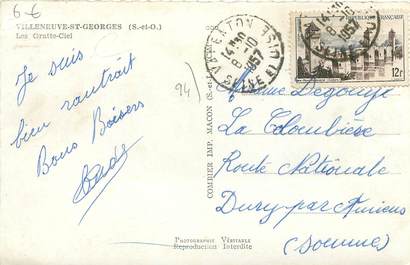 6 €
VILLENEUVE-ST-GEORGES (S.-et-O.)
Les Gratte-Ciel
Je suis
bien rentrait
Bons Baisers
94)
COMBIER IMP. MACON (S.-et-L.)
PHOTOGRAPHIE VÉRITABLE
Reproduction Interdite
RÉPUBLIQUE FRANÇAISE
12f
1957
SEINE ET
1957
Madame Degouye
La Colombière
Route Nationale
Dury-par-Amiens
(Somme)